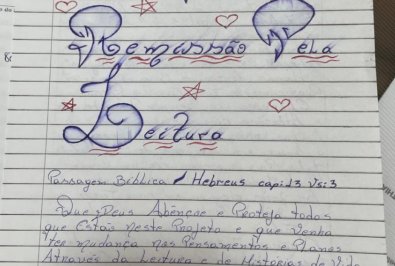 Remissão Pela
Leitura
Passagem Bíblica / Hebreus capi:13 Vs:3
Que Deus Abençoe e Proteja todos
que Estais neste Projeto e que Venha
ter mudança nos Pensamentos e Planos
Através da Leitura e de Histórias de Vida